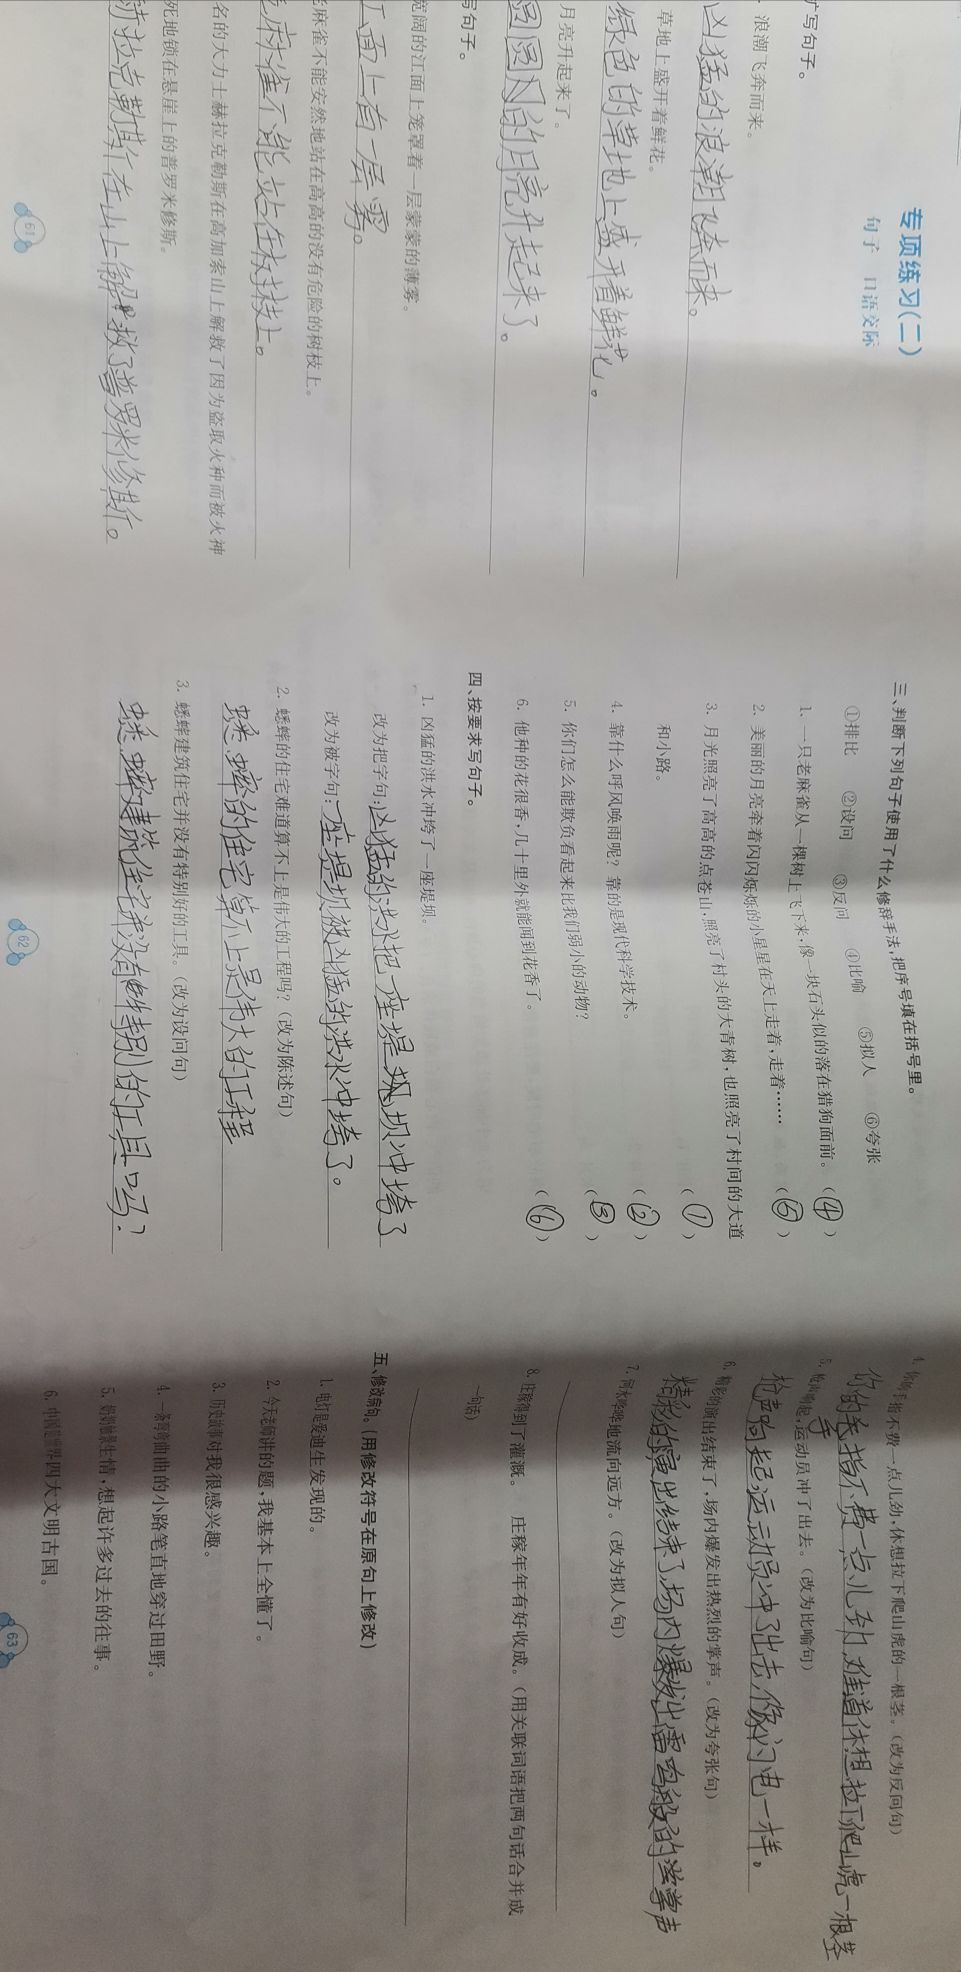 专项练习(二)
句子 口语交际
扩写句子。
浪潮飞奔而来。
凶猛的浪潮飞奔而来。
草地上盛开着鲜花。
绿色的草地上盛开着鲜花。
月亮升起来了。
圆圆的月亮升起来了。
写句子。
宽阔的江面上笼罩着一层蒙蒙的薄雾。
江面上有一层雾。
老麻雀不能安然地站在高高的没有危险的树枝上。
老麻雀不能站在树枝上。
名的大力士赫拉克勒斯在高加索山上解救了因为盗取火种而被火神
死地锁在悬崖上的普罗米修斯。
赫拉克勒斯在山上解救了普罗米修斯。
61
三、判断下列句子使用了什么修辞手法,把序号填在括号里。
①排比 ②设问 ③反问 ④比喻 ⑤拟人 ⑥夸张
1. 一只老麻雀从一棵树上飞下来,像一块石头似的落在猎狗面前。 (④)
2. 美丽的月亮牵着闪闪烁烁的小星星在天上走着,走着…… (⑤)
3. 月光照亮了高高的点苍山,照亮了村头的大青树,也照亮了村间的大道
和小路。 (①)
4. 靠什么呼风唤雨呢?靠的是现代科学技术。 (②)
5. 你们怎么能欺负看起来比我们弱小的动物? (③)
6. 他种的花很香,几十里外就能闻到花香了。 (⑥)
四、按要求写句子。
1. 凶猛的洪水冲垮了一座堤坝。
改为把字句:凶猛的洪水把一座堤坝冲垮了
改为被字句:一座堤坝被凶猛的洪水冲垮了。
2. 蟋蟀的住宅难道算不上是伟大的工程吗?(改为陈述句)
蟋蟀的住宅算不上是伟大的工程
3. 蟋蟀建筑住宅并没有特别好的工具。(改为设问句)
蟋蟀建筑住宅并没有特别的工具吗?
62
4. 你的手指不费一点儿劲,休想拉下爬山虎的一根茎。(改为反问句)
你的手指不费一点儿劲难道休想拉下爬山虎一根茎
5. 枪声响起,运动员冲了出去。(改为比喻句)
枪声响起运动员冲了出去像闪电一样。
6. 精彩的演出结束了,场内爆发出热烈的掌声。(改为夸张句)
精彩的演出结束了场内爆发出雷鸣般的掌声
7. 河水哗哗地流向远方。(改为拟人句)
8. 庄稼得到了灌溉。 庄稼年年有好收成。(用关联词语把两句话合并成
一句话)
五、修改病句。(用修改符号在原句上修改)
1. 电灯是爱迪生发现的。
2. 今天老师讲的题,我基本上全懂了。
3. 历史故事对我很感兴趣。
4. 一条弯弯曲曲的小路笔直地穿过田野。
5. 奶奶触景生情,想起许多过去的往事。
6. 中国是世界四大文明古国。
63